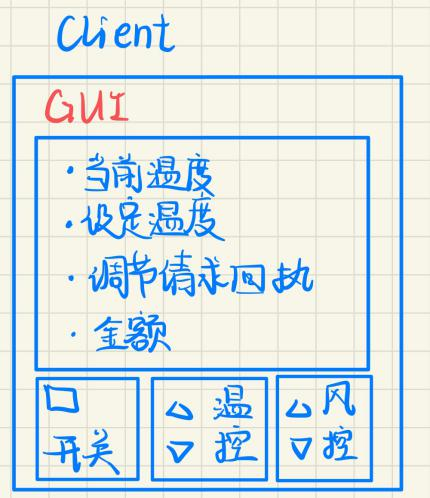 Client
GUI
·当前温度
·设定温度
·调节请求回执
·金额
开关
温控
风控